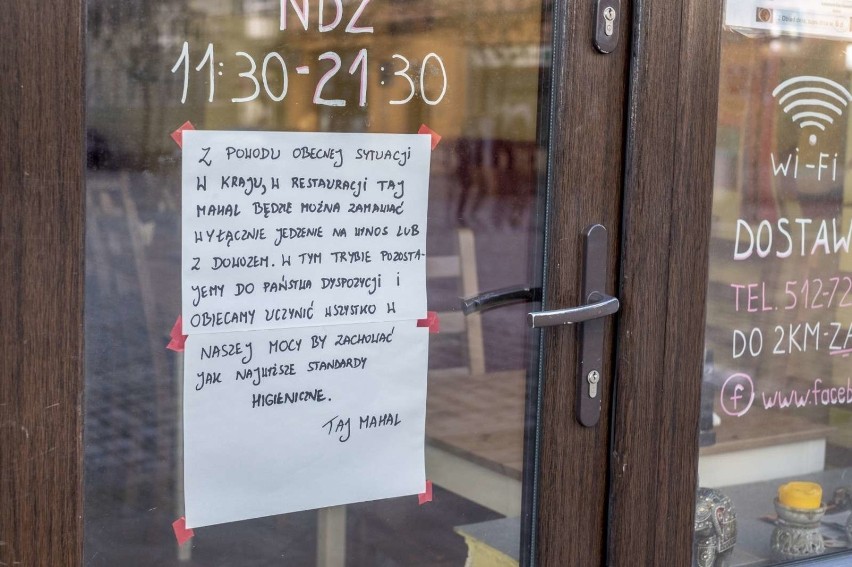 NDZ
11:30-21:30
Z POWODU OBECNEJ SYTUACJI
W KRAJU, W RESTAURACJI TAJ
MAHAL BĘDZIE MOŻNA ZAMAWIAĆ
WYŁĄCZNIE JEDZENIE NA WYNOS LUB
Z DOWOZEM. W TYM TRYBIE POZOSTA-
JEMY DO PAŃSTWA DYSPOZYCJI I
OBIECAMY UCZYNIĆ WSZYSTKO W
NASZEJ MOCY BY ZACHOWAĆ
JAK NAJWYŻSZE STANDARDY
HIGIENICZNE.
TAJ MAHAL
Wi-Fi
DOSTAW
TEL. 512-72
DO 2KM-ZA
f www.faceb